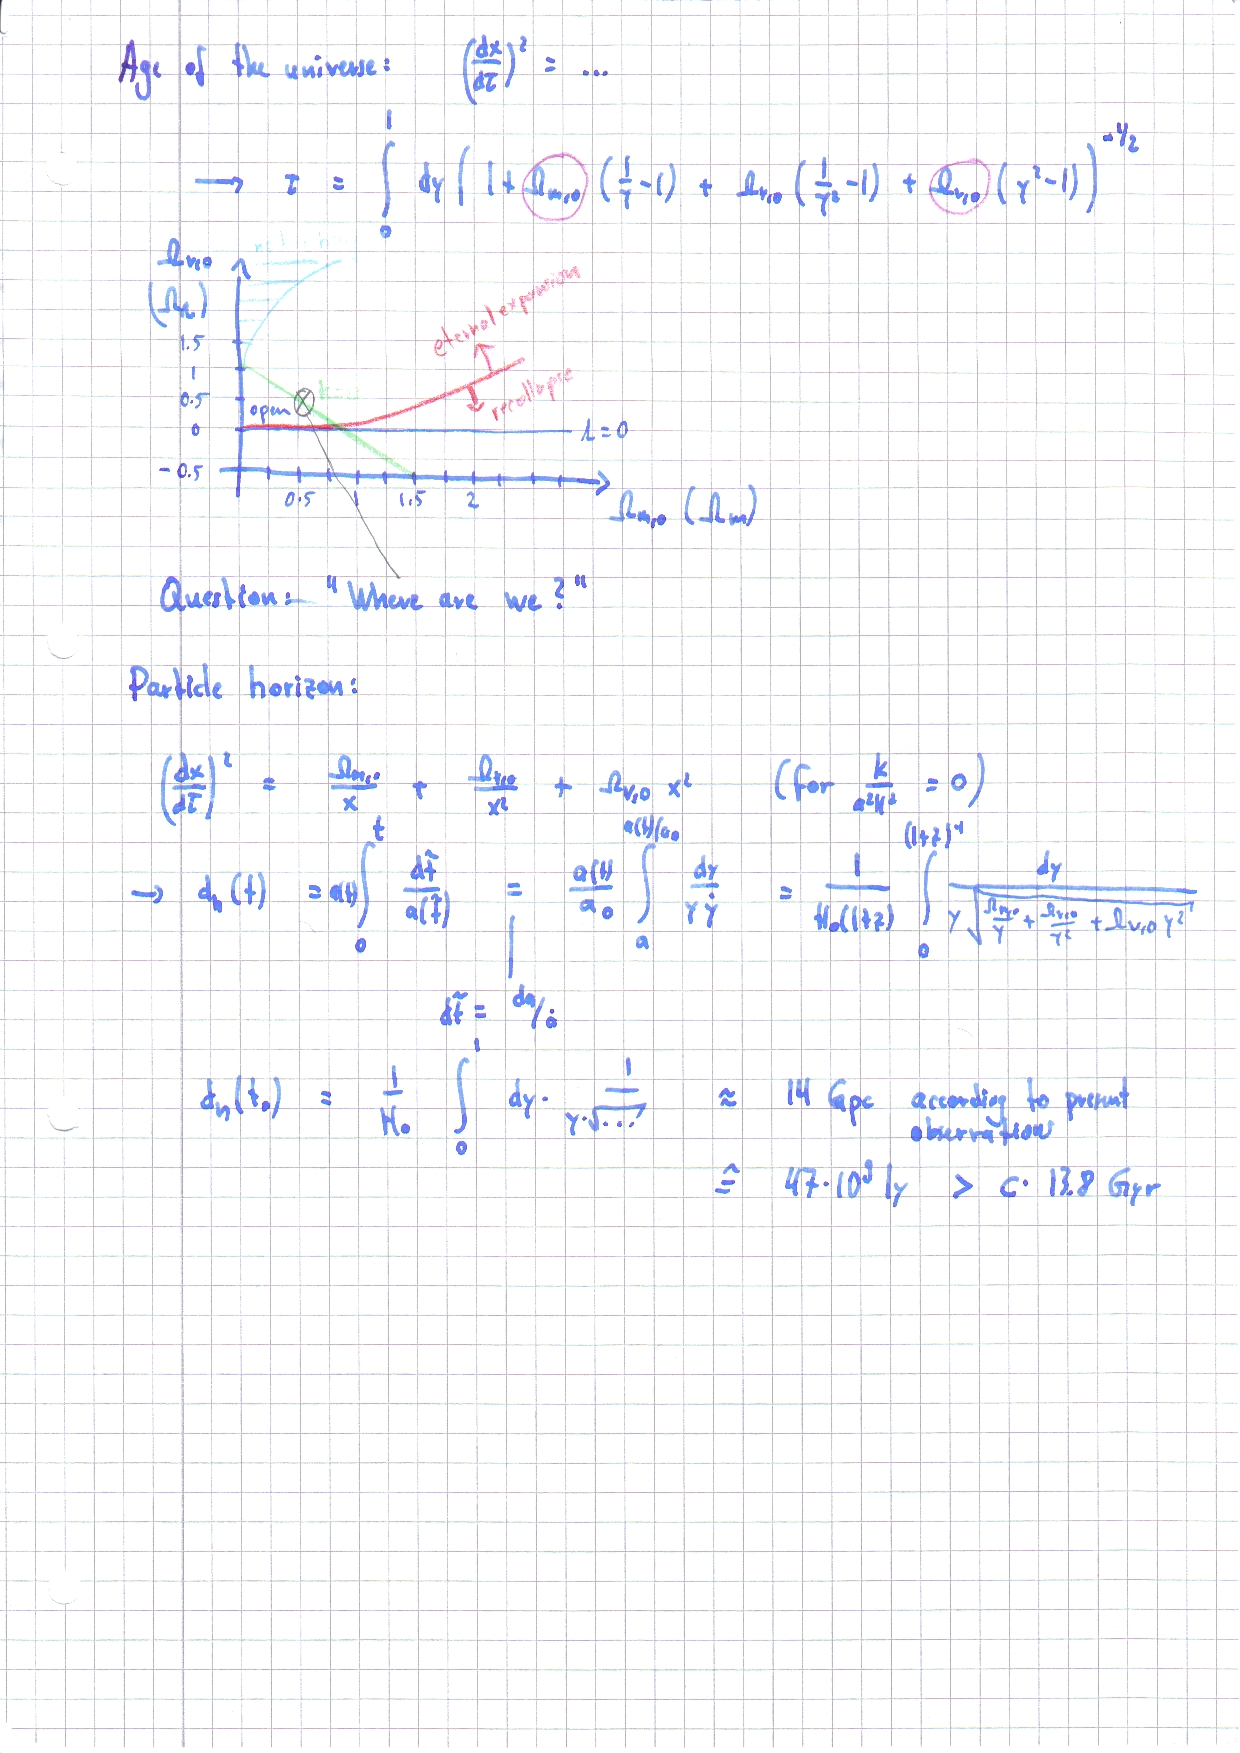 Age of the universe: (dx/dτ)² = ...
→ τ = ∫₀¹ dy ( 1 + Ω_m,0 (1/y − 1) + Ω_r,0 (1/y² − 1) + Ω_v,0 (y² − 1) )^−1/2
Ω_v,0
(Ω_Λ)
1.5
1
0.5
0
-0.5
eternal expansion
recollapse
open
Λ=0
0.5 1 1.5 2
Ω_m,0 (Ω_m)
Question: "Where are we?"
Particle horizon:
(dx/dτ)² = Ω_m,0/x + Ω_r,0/x² + Ω_v,0 x² (for k/a²H² = 0)
→ d_h(t) = a(t) ∫₀ᵗ dt̃/a(t̃) = a(t)/a₀ ∫_a^{a(t)/a₀} dy/(y ẏ) = 1/(H₀(1+z)) ∫₀^{(1+z)⁻¹} dy/(y √(Ω_m,0/y + Ω_r,0/y² + Ω_v,0 y²))
dt̃ = da/ȧ
d_h(t₀) = 1/H₀ ∫₀¹ dy · 1/(y·√...) ≈ 14 Gpc according to present
observations
≙ 47·10⁹ ly > c· 13.8 Gyr